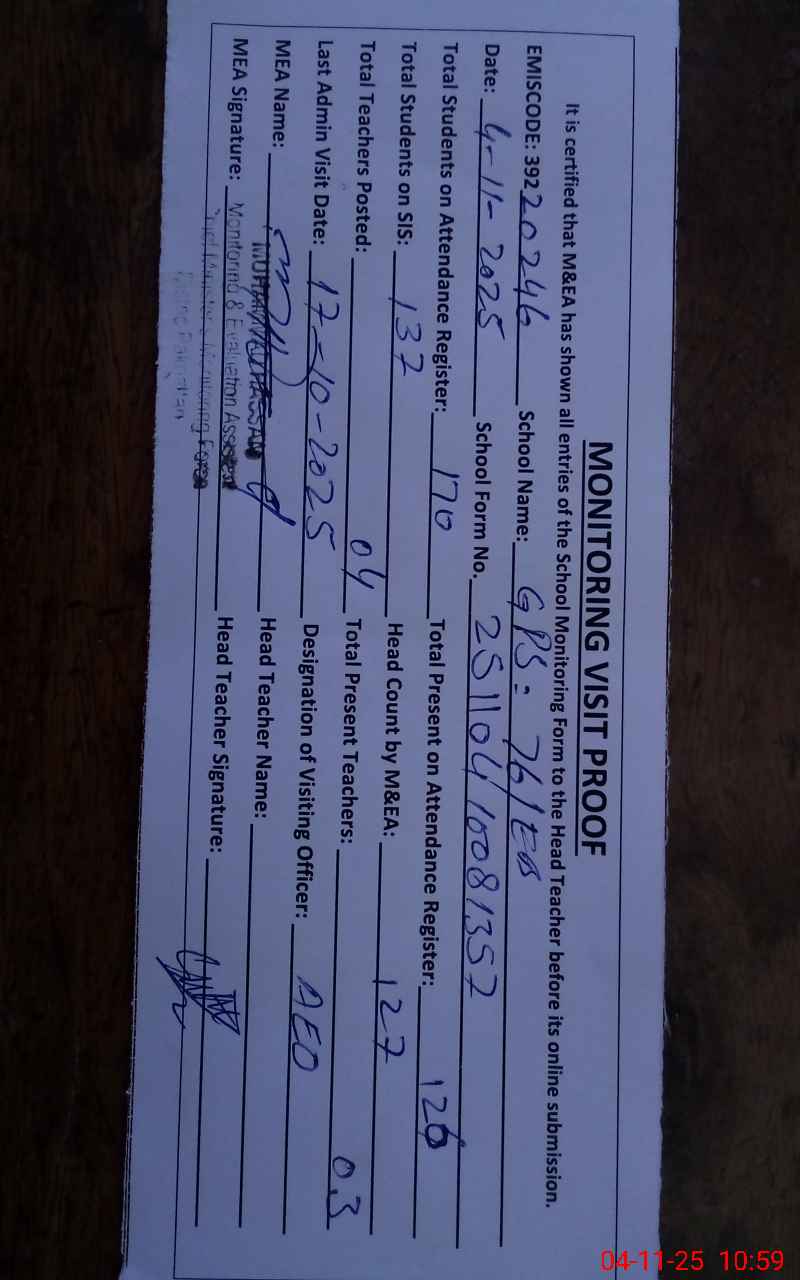 MONITORING VISIT PROOF
It is certified that M&EA has shown all entries of the School Monitoring Form to the Head Teacher before its online submission.
EMISCODE: 39220246 School Name: GPS: 761EB
Date: 4-11-2025 School Form No. 2511041008 1357
Total Students on Attendance Register: 170 Total Present on Attendance Register: 126
Total Students on SIS: 137 Head Count by M&EA: 127
Total Teachers Posted: 04 Total Present Teachers: 03
Last Admin Visit Date: 17-10-2025 Designation of Visiting Officer: AEO
MEA Name: Head Teacher Name:
MEA Signature: Monitoring & Evaluation Head Teacher Signature:
04-11-25 10:59